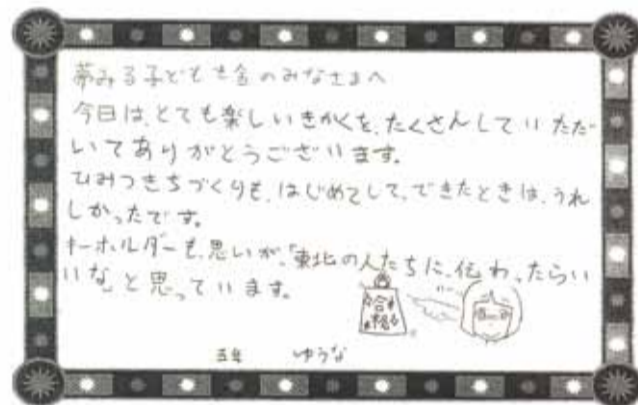 夢みる子ども基金のみなさまへ
今日は、とても楽しいきかくを、たくさんしていただ
いてありがとうございます。
ひみつきちづくりも、はじめてして、できたときは、うれ
しかったです。
キーホルダーも、思いが、「東北の人たちに、伝わったらい
いな」と思っています。
合格
五年 ゆうな